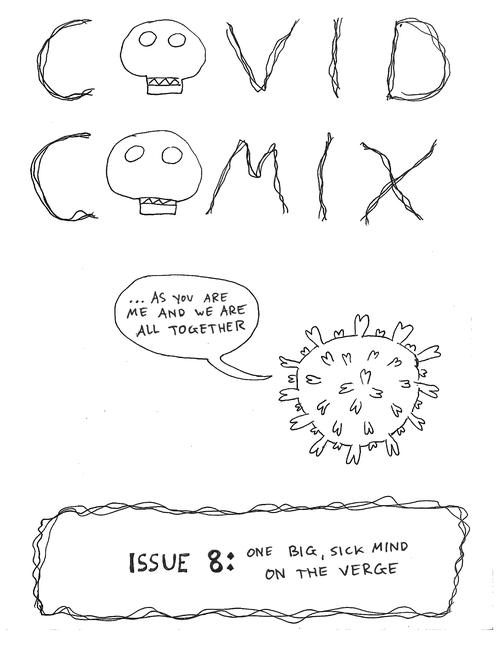 COVID
COMIX
... AS YOU ARE
ME AND WE ARE
ALL TOGETHER
ISSUE 8: ONE BIG, SICK MIND
ON THE VERGE